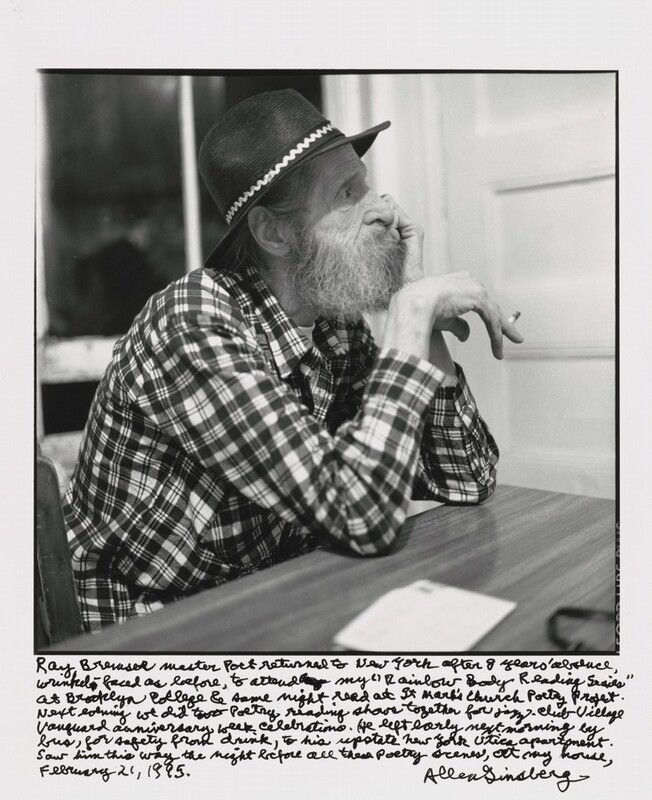 Ray Bremser master Poet returned to New York after 8 years' absence,
wrinkle faced as before, to attend my "Rainbow Body Reading Series"
at Brooklyn College & same night read at St Mark's Church Poetry Project.
Next evening we did Poetry reading show together for jazz club Village
Vanguard anniversary week celebrations. He left early next morning by
bus, for safety from drunk, to his upstate new York Utica apartment.
Saw him this way the night before all these Poetry scenes, at my house,
February 21, 1995.
Allen Ginsberg